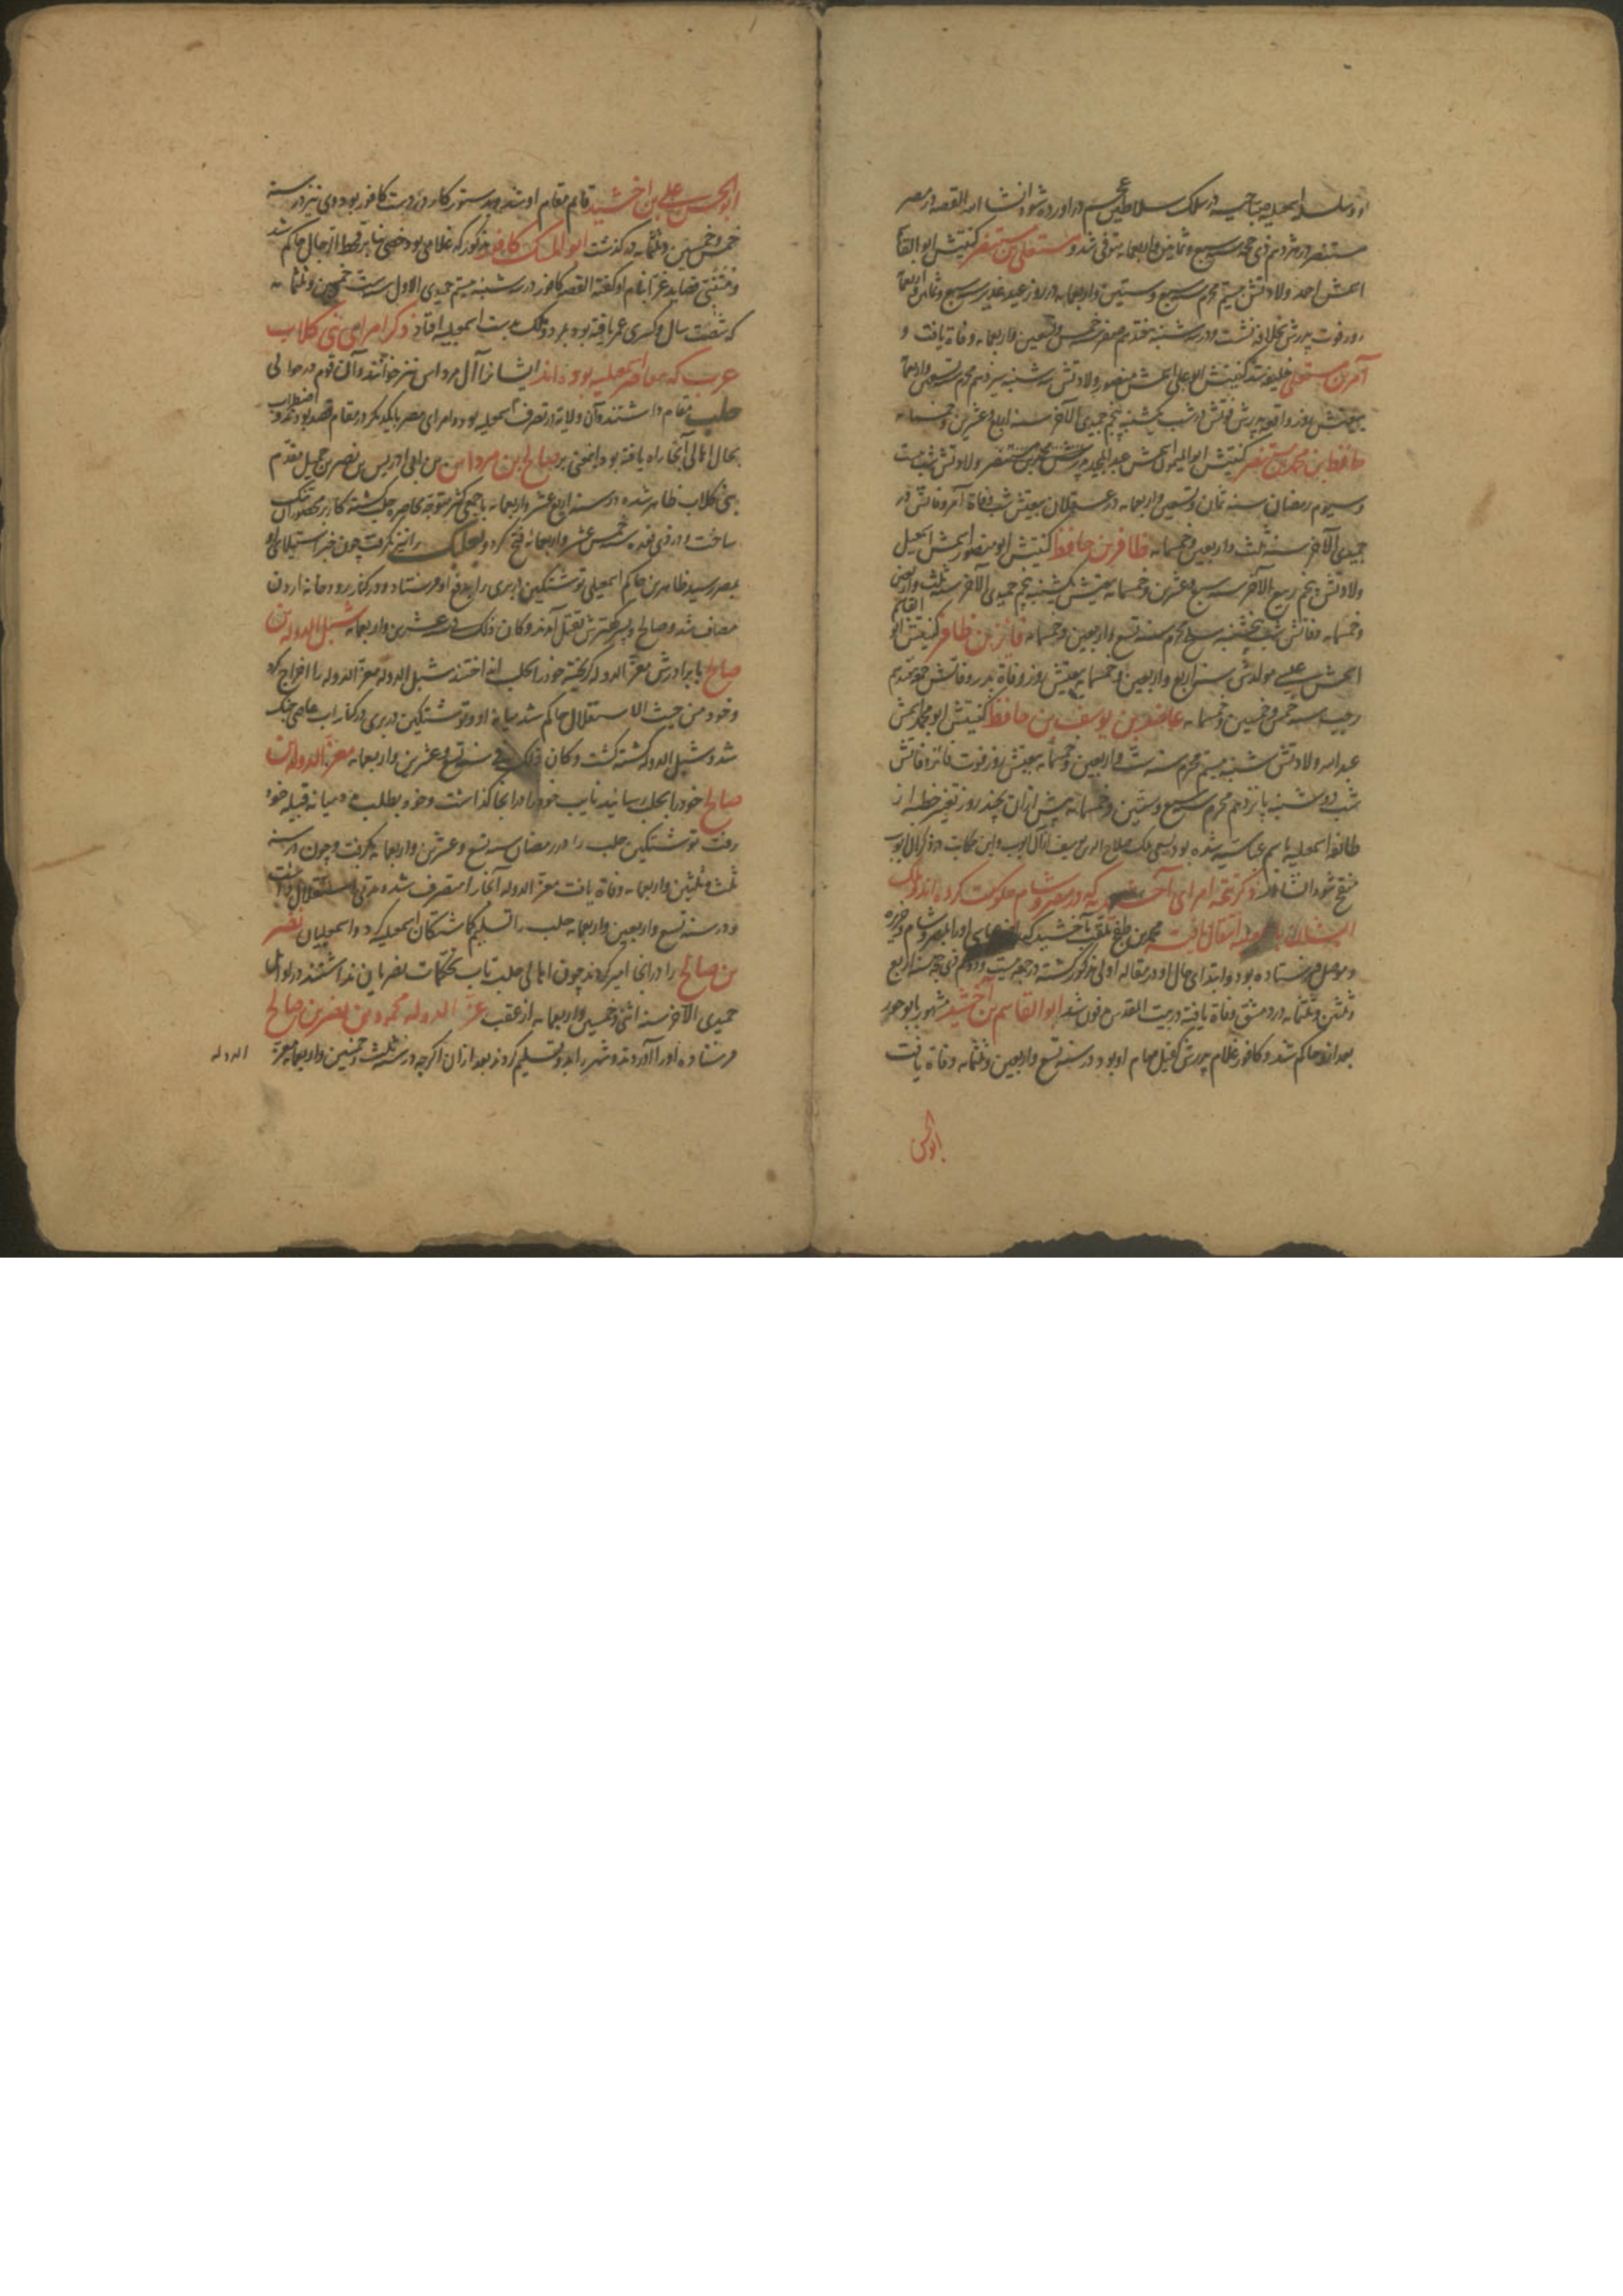 او و سلسله اسمعیلیه صباحیه در سلک سلاطین عجم در آورده شود انشا الله القصه در مصر
مستنصر در هژدهم ذی حجه سنه سبع و ثمانین و اربعمایه متوفی شد و مستعلی بن مستنصر کنیتش ابو القاسم
اسمش احمد ولادتش بیستم محرم سبع و ستین و اربعمایه در روز عید غدیر سنه سبع و ثمانین و اربعمایه
روز فوت پدرش بخلافه نشست و در سه شنبه هفدهم صفر خمس و تسعین و اربعمایه وفاة یافت و
آمر بن مستعلی خلیفه شد کنیتش ابو علی اسمش منصور ولادتش سه شنبه سیزدهم محرم تسعین و اربعمایه
بیعتش روز واقعه پدرش فوتش در شب یکشنبه پنجم جمیدی الآخر سنه اربع و عشرین و خمسمایه
حافظ بن محمد بن مستنصر کنیتش ابو المیمون اسمش عبد المجید پدرش محمد بن مستنصر ولادتش بیست
و سیوم رمضان سنه ثمان و تسعین و اربعمایه در عسقلان بیعتش شب وفاة آمر وفاتش در
جمیدی الآخر سنه ثلث و اربعین و خمسمایه ظافر بن حافظ کنیتش ابو منصور اسمش اسمعیل
ولادتش پنجم ربیع الآخر سنه سبع و عشرین و خمسمایه بیعتش یکشنبه پنجم جمیدی الآخر سنه ثلث و اربعین
و خمسمایه وفاتش شب پنجشنبه سلخ محرم سنه تسع و اربعین و خمسمایه فائز بن ظافر کنیتش ابو القاسم
اسمش علی مولدش سنه اربع و اربعین و خمسمایه بیعتش روز وفاة پدر وفاتش هفدهم
رجب سنه خمس و خمسین و خمسمایه عاضد بن یوسف بن حافظ کنیتش ابو محمد اسمش
عبد الله ولادتش شنبه بیستم محرم سنه ست و اربعین و خمسمایه بیعتش روز فوت فائز وفاتش
شب دوشنبه پانزدهم محرم سبع و ستین و خمسمایه پیش ازان بچند روز تغییر خطبه از
طائفه اسمعیلیه باسم عباسیه شده بود بسعی ملک صلاح الدین یوسف از آل ایوب و این حکایت در ذکر آل ایوب
منقح شود انشا الله ذکر تتمه امرای که در مصر و شام حکومت کرده اند و ملک
ایشان باسمعیلیه انتقال یافت محمد بن طغج ملقب باخشید که عباسی او را بمصر و شام و جزیره
و موصل فرستاده بود و ابتدای حال او در مقاله اولی مذکور گشته در جمعه بیست و دوم ذی حجه سنه اربع
و ثلثین و ثلثمایه در دمشق وفاة یافته در بیت المقدس مدفون شد ابو القاسم بن اخشید مشهور بابو جور
بعد ازو حاکم شد و کافور غلام پدرش کفیل مهام او بود در سنه تسع و اربعین و ثلثمایه وفاة یافت
ابو الحسن
ابو الحسن علی بن اخشید قایم مقام او شد و بدستور کار در دست کافور بود وی نیز در سنه
خمس و خمسین و ثلثمایه در گذشت ابو المسک کافور مذکور که غلامی بود خصی بنابر قحط الرجال حاکم شد
و متنبی قصاید غرّا بنام او گفته القصه کافور در سه شنبه بیستم جمیدی الاول سنه ست و خمسین و ثلثمایه
که شصت سال و کسری عمر یافته بود بمرد و ملک بدست اسمعیلیه افتاد ذکر امرای بنی کلاب
عرب که معاصر اسمعلیه بوده اند ایشانرا آل مرداس نیز خوانند و آن قوم در حوالی
حلب مقام داشتند و آن ولایة در تصرف اسمعیلیه بود و امرای مصر با یکدیگر در مقام قصد بودند و اضطراب
بحال اهالی آنجا راه یافته بود و اینمعنی بر صالح بن مرداس بن ادریس بن نصر بن جمیل مقدم
بنی کلاب ظاهر شده در سنه اربع عشر و اربعمایه با جمعی کثیر متوجه محاصره حلب گشته کار بر محصوران تنک
ساخت و در ذی قعده خمس عشر و اربعمایه فتح کرد و بعلبک را نیز بگرفت چون خبر استیلای او
بمصر رسید ظاهر بن حاکم اسمعیلی نوشتکین دبری را بدفع او فرستاد و در کنار رودخانه اردن
مصاف شد و صالح و پسر کهترش بقتل آمدند و کان ذلک فی عشرین و اربعمایه شبل الدوله بن
صالح با برادرش معز الدوله گریخته خود را بحلب انداختند شبل الدوله معز الدوله را اخراج کرد
و خود من حیث الاستقلال حاکم شد میانه او و نوشتکین دربری در کنار آب عاصی جنک
شد و شبل الدوله کشته گشت و کان ذلک فی سنه تسع و عشرین و اربعمایه معز الدوله بن
صالح خود را بحلب رسانید نایب خود را در انجا گذاشت و خود بطلب مدد میانه قبیله خود
رفت نوشتکین حلب را در رمضان سنه تسع و عشرین و اربعمایه بگرفت و چون در سنه
ثلث و ثلثین و اربعمایه وفاة یافت معز الدوله آنجا را متصرف شده مدتی استقلال داشت
و در سنه تسع و اربعین و اربعمایه حلب را تسلیم گماشتگان اسمعیلیه کرد و اسمعیلیان نصر
بن صالح را در انجا امیر کردند چون اهالی حلب تاب تحکمات نصر بان نداشتند در اوایل
جمیدی الآخر سنه اثنی و خمسین و اربعمایه از عقب عز الدوله محمود بن نصر بن صالح
فرستاده او را آوردند و شهر را بدو تسلیم کردند بعد ازان اگرچه در سنه ثلث و خمسین و اربعمایه معز
الدوله